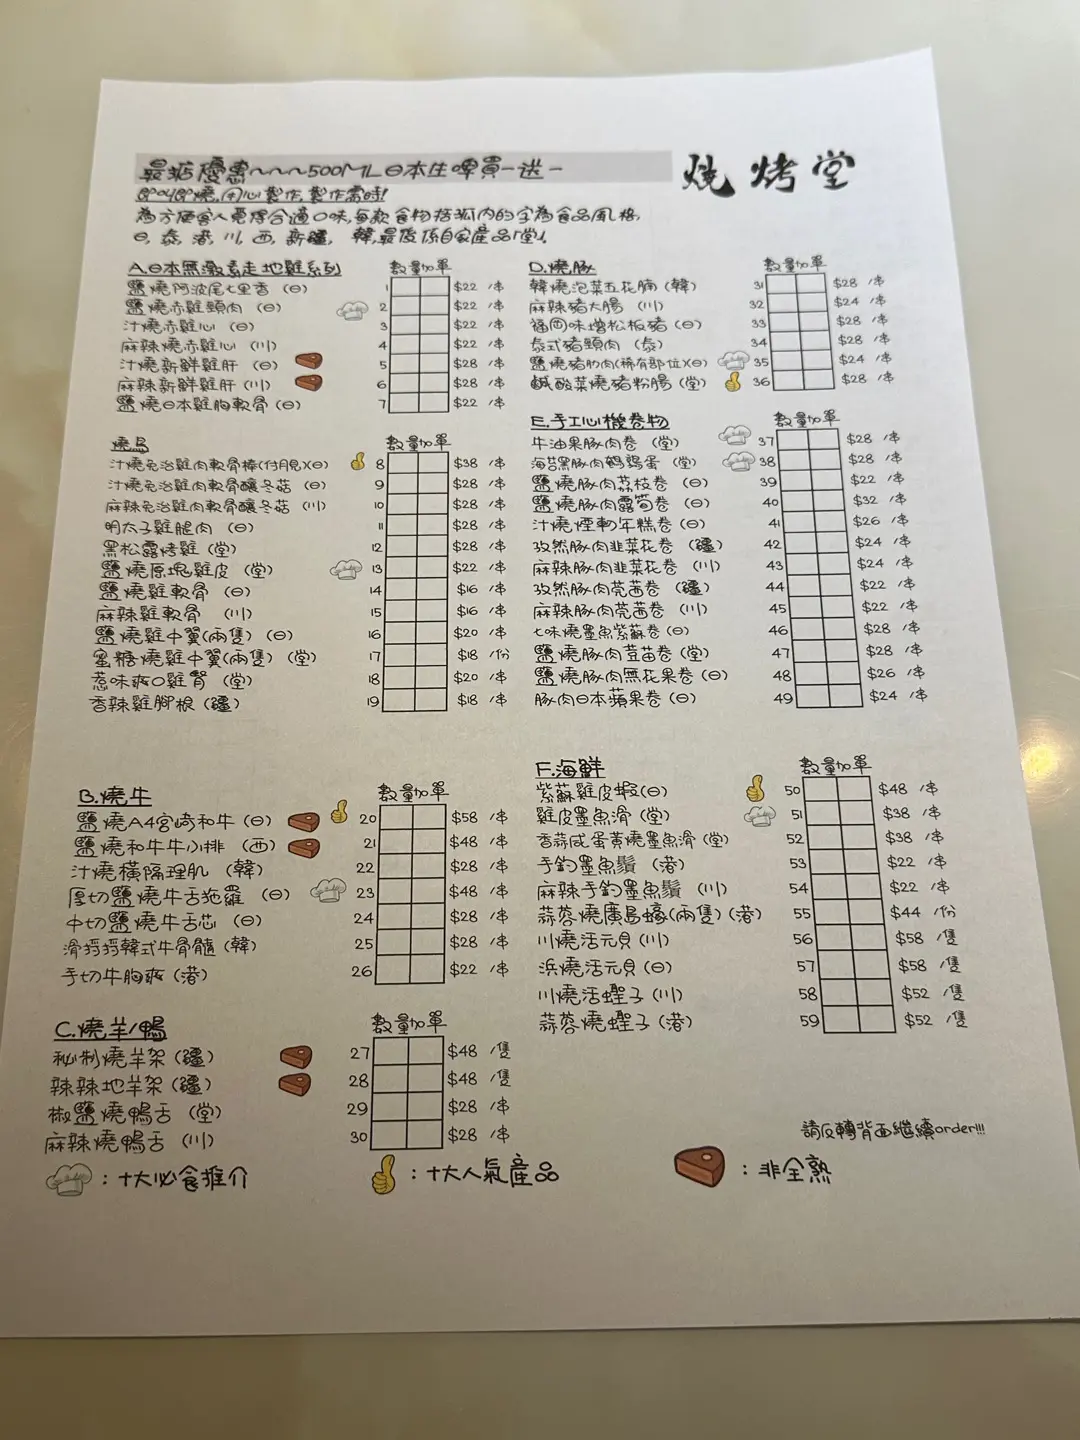 最抵優惠~~~500ML日本生啤買一送一
燒烤堂
即叫即燒,用心製作,製作需時!
為方便客人覓得合適口味,每款食物括弧內的字為食品風格,
日,泰,港,川,西,新疆,韓,最後係自家產品「堂」.
A.日本無激素走地雞系列 數量加單
鹽燒阿波尾七里香(日) 1 $22 /串
鹽燒赤雞頸肉(日) 2 $22 /串
汁燒赤雞心(日) 3 $22 /串
麻辣燒赤雞心(川) 4 $22 /串
汁燒新鮮雞肝(日) 5 $28 /串
麻辣新鮮雞肝(川) 6 $28 /串
鹽燒日本雞胸軟骨(日) 7 $22 /串
燒鳥 數量加單
汁燒免治雞肉軟骨棒(付月見)(日) 8 $38 /串
汁燒免治雞肉軟骨釀冬菇(日) 9 $28 /串
麻辣免治雞肉軟骨釀冬菇(川) 10 $28 /串
明太子雞腿肉(日) 11 $28 /串
黑松露烤雞(堂) 12 $28 /串
鹽燒原塊雞皮(堂) 13 $22 /串
鹽燒雞軟骨(日) 14 $16 /串
麻辣雞軟骨(川) 15 $16 /串
鹽燒雞中翼(兩隻)(日) 16 $20 /串
蜜糖燒雞中翼(兩隻)(堂) 17 $18 /份
惹味爽口雞腎(堂) 18 $20 /串
香辣雞腳根(疆) 19 $18 /串
B.燒牛 數量加單
鹽燒A4宮崎和牛(日) 20 $58 /串
鹽燒和牛牛小排(西) 21 $48 /串
汁燒橫隔理肌(韓) 22 $28 /串
厚切鹽燒牛舌拖羅(日) 23 $48 /串
中切鹽燒牛舌芯(日) 24 $28 /串
滑捋捋韓式牛骨髓(韓) 25 $28 /串
手切牛胸爽(港) 26 $22 /串
C.燒羊/鴨 數量加單
秘制燒羊架(疆) 27 $48 /隻
辣辣地羊架(疆) 28 $48 /隻
椒鹽燒鴨舌(堂) 29 $28 /串
麻辣燒鴨舌(川) 30 $28 /串
D.燒豚 數量加單
韓燒泡菜五花腩(韓) 31 $28 /串
麻辣豬大腸(川) 32 $24 /串
福岡味增松板豬(日) 33 $28 /串
泰式豬頸肉(泰) 34 $28 /串
鹽燒豬肋肉(稀有部位)(日) 35 $24 /串
鹹酸菜燒豬粉腸(堂) 36 $28 /串
E.手工心機卷物 數量加單
牛油果豚肉卷(堂) 37 $28 /串
海苔黑豚肉鵪鶉蛋(堂) 38 $28 /串
鹽燒豚肉荔枝卷(日) 39 $22 /串
鹽燒豚肉露筍卷(日) 40 $32 /串
汁燒煙肉年糕卷(日) 41 $26 /串
孜然豚肉韭菜花卷(疆) 42 $24 /串
麻辣豚肉韭菜花卷(川) 43 $24 /串
孜然豚肉莞茜卷(疆) 44 $22 /串
麻辣豚肉莞茜卷(川) 45 $22 /串
七味燒墨魚紫蘇卷(日) 46 $28 /串
鹽燒豚肉荳苗卷(堂) 47 $28 /串
鹽燒豚肉無花果卷(日) 48 $26 /串
豚肉日本蘋果卷(日) 49 $24 /串
F.海鮮 數量加單
紫蘇雞皮蝦(日) 50 $48 /串
雞皮墨魚滑(堂) 51 $38 /串
香蒜咸蛋黃燒墨魚滑(堂) 52 $38 /串
手釣墨魚鬚(港) 53 $22 /串
麻辣手釣墨魚鬚(川) 54 $22 /串
蒜蓉燒廣島蠔(兩隻)(港) 55 $44 /份
川燒活元貝(川) 56 $58 /隻
浜燒活元貝(日) 57 $58 /隻
川燒活蟶子(川) 58 $52 /隻
蒜蓉燒蟶子(港) 59 $52 /隻
請反轉背面繼續order!!!
:十大必食推介
:十大人氣產品
:非全熟